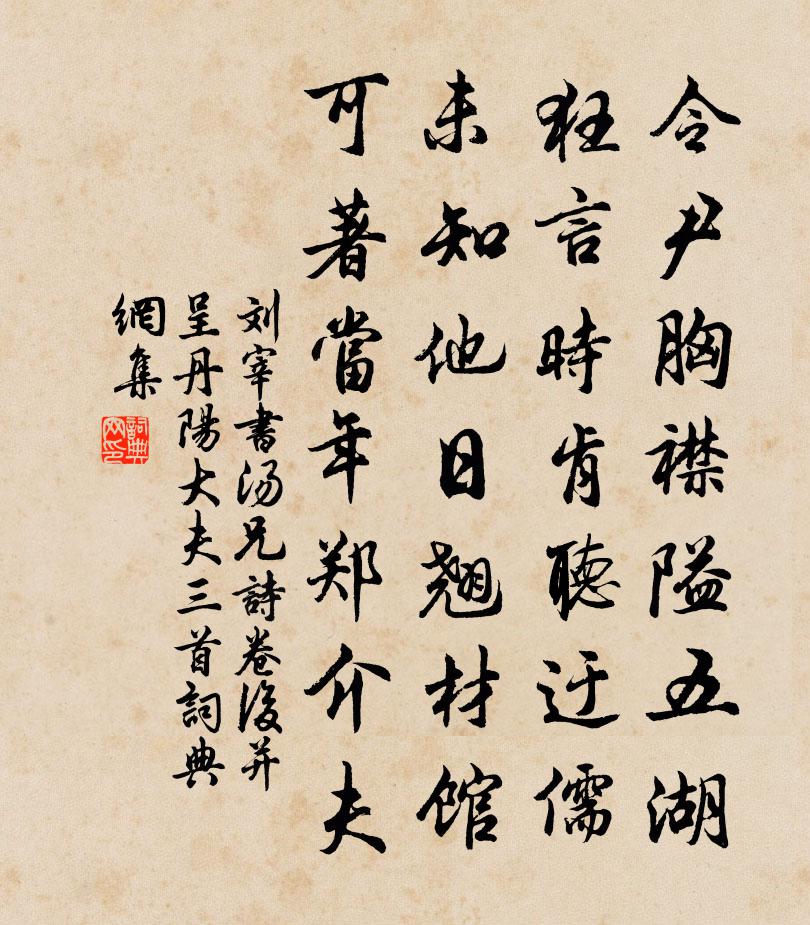 令尹胸襟隘五湖
狂言時肯聽迂儒
未知他日翹材馆
可著當年郑介夫
刘宰書汤兄詩卷後并
呈丹陽大夫三首詞典
網集
詞典
网印